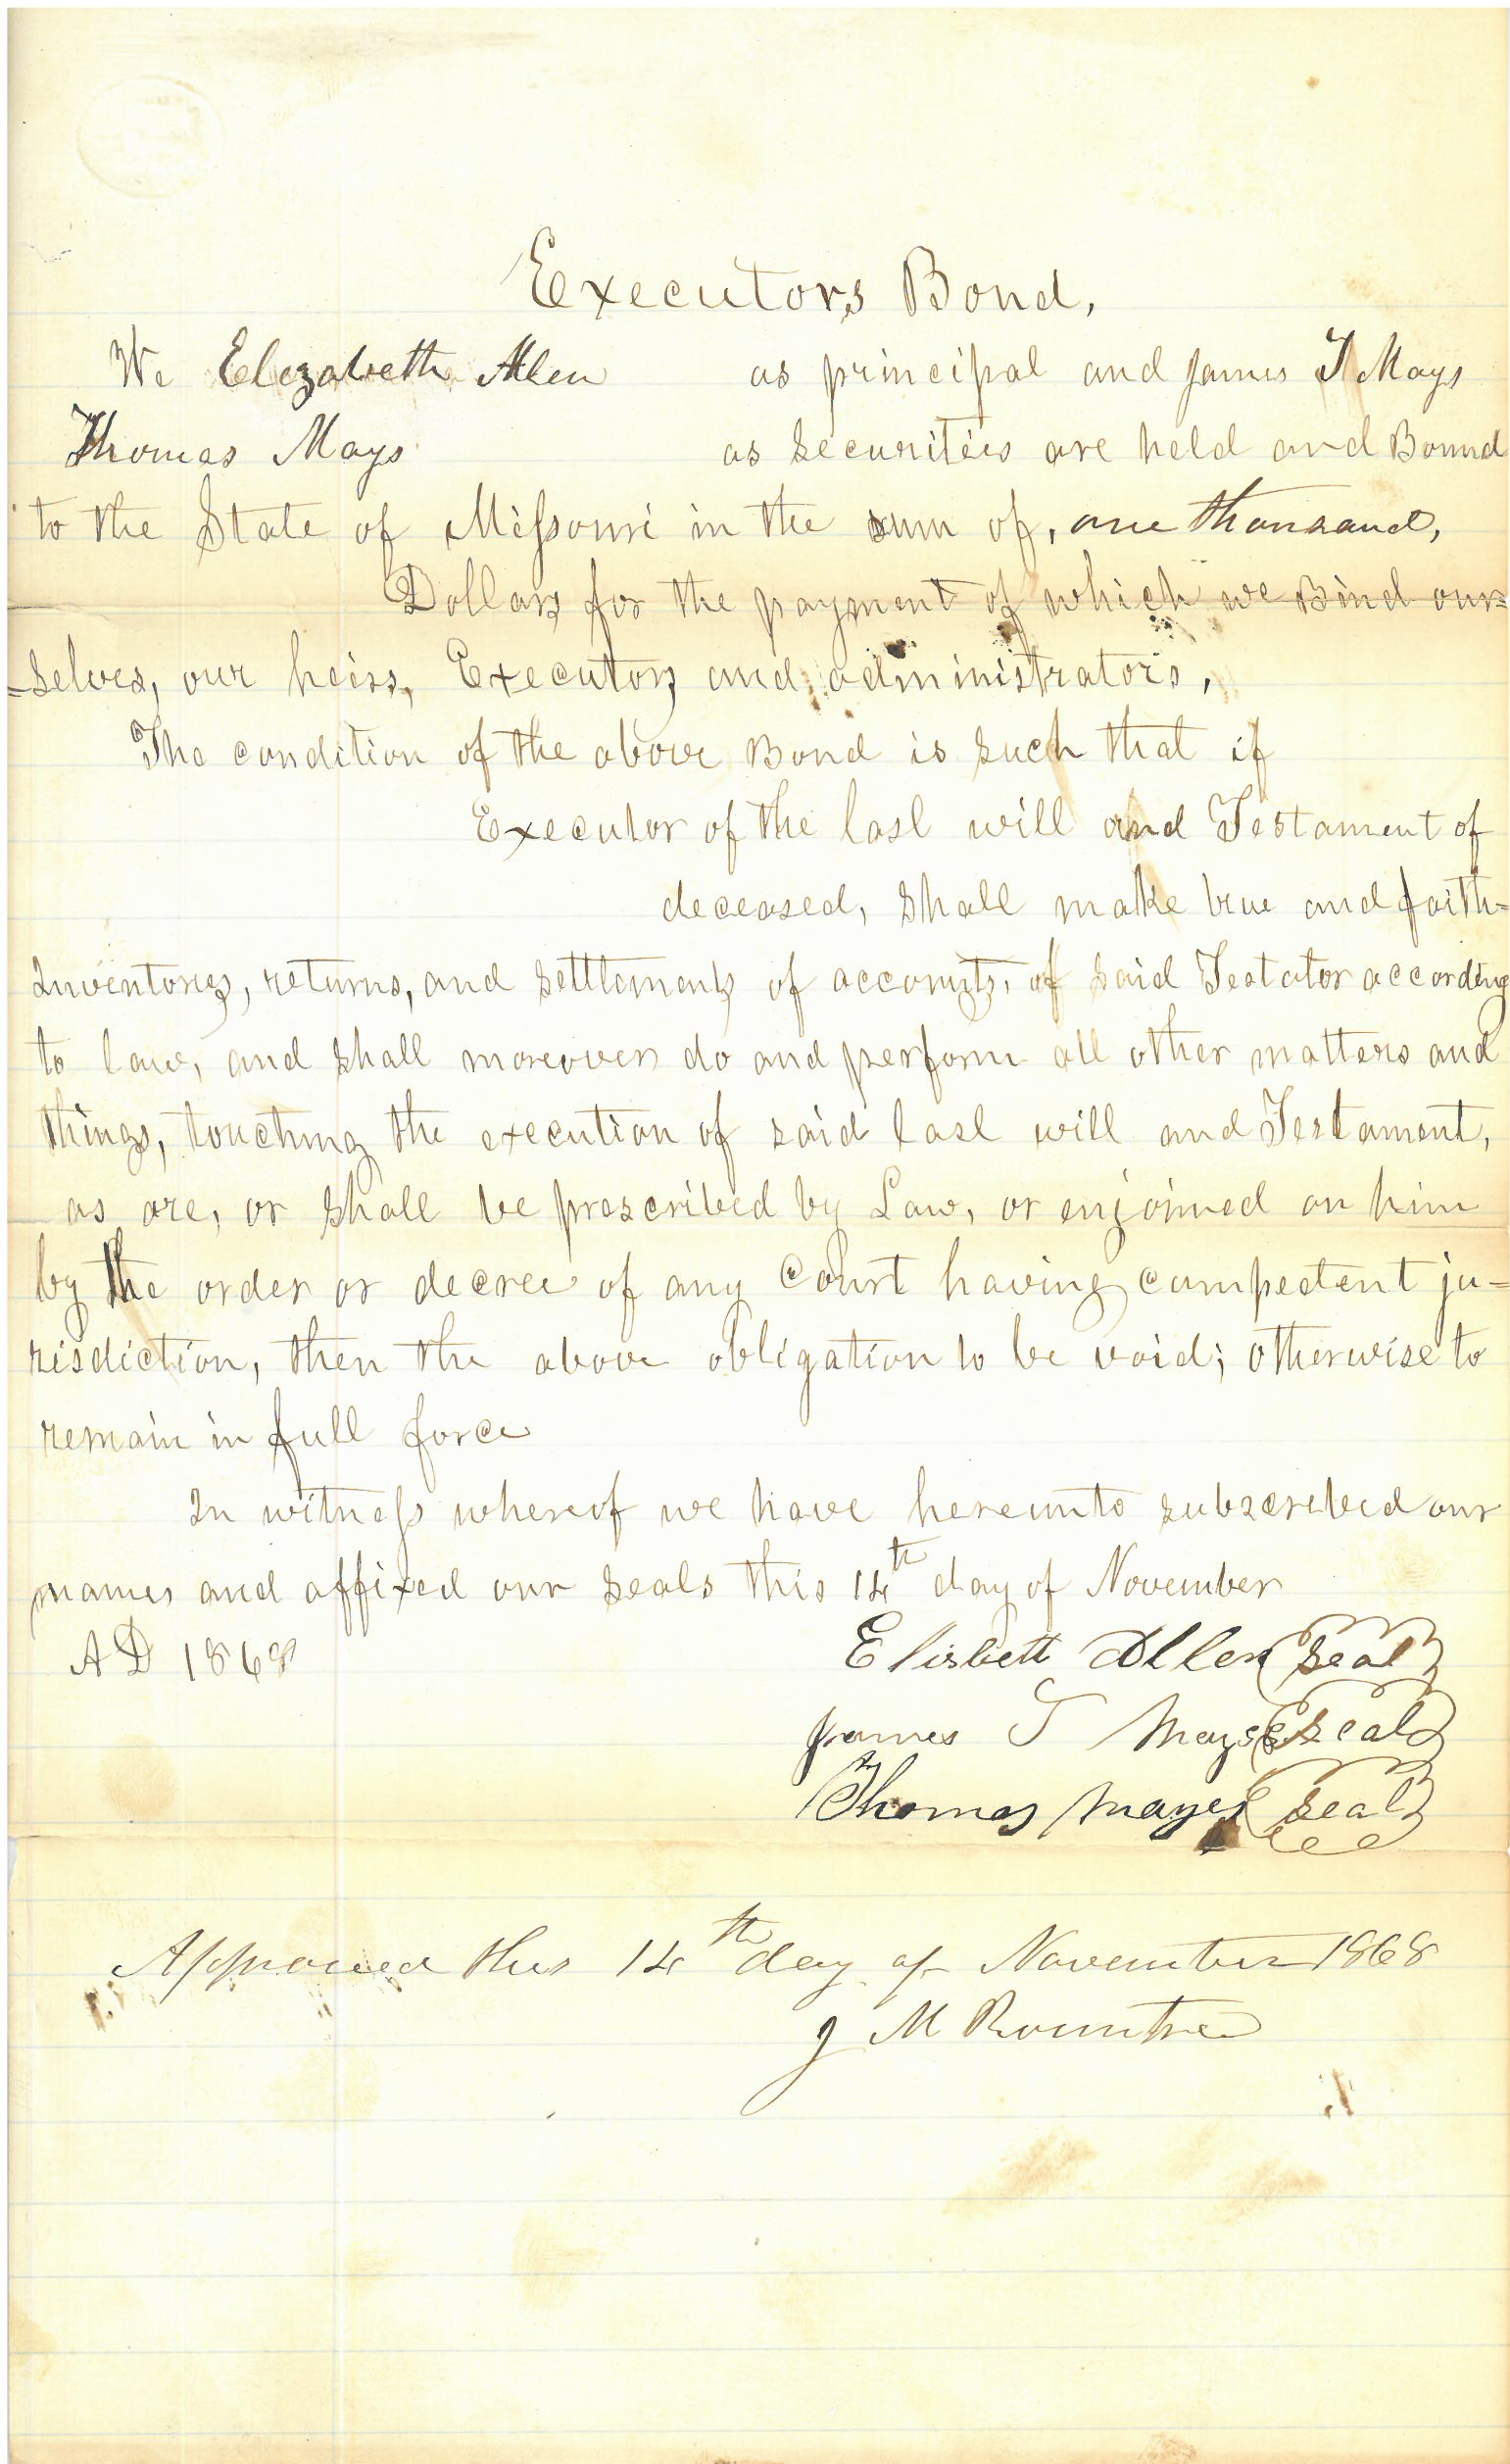 Executors Bond,
We Elezabeth Allen as principal and James T Mays
Thomas Mays as securities are held and Bound
to the State of Missouri in the sum of, one thousand,
Dollars for the payment of which we Bind our=
=selves, our heirs, Executors and administrators,
The condition of the above Bond is such that if
Executor of the last will and Testament of
deceased, shall make true and faith=
Inventories, returns, and settlements of accounts, of said Testator according
to law, and shall moreover do and perform all other matters and
things, touching the execution of said last will and Testament,
as are, or shall be prescribed by Law, or enjoined on him
by the order or decree of any Court having competent ju=
risdiction, then the above obligation to be void; otherwise to
remain in full force
In witness whereof we have hereunto subscribed our
names and affixed our seals this 14th day of November
AD 1868
Elisbett Allen seal
James T Mays seal
Thomas Mayes seal
Approved this 14th day of November 1868
J M Rountree